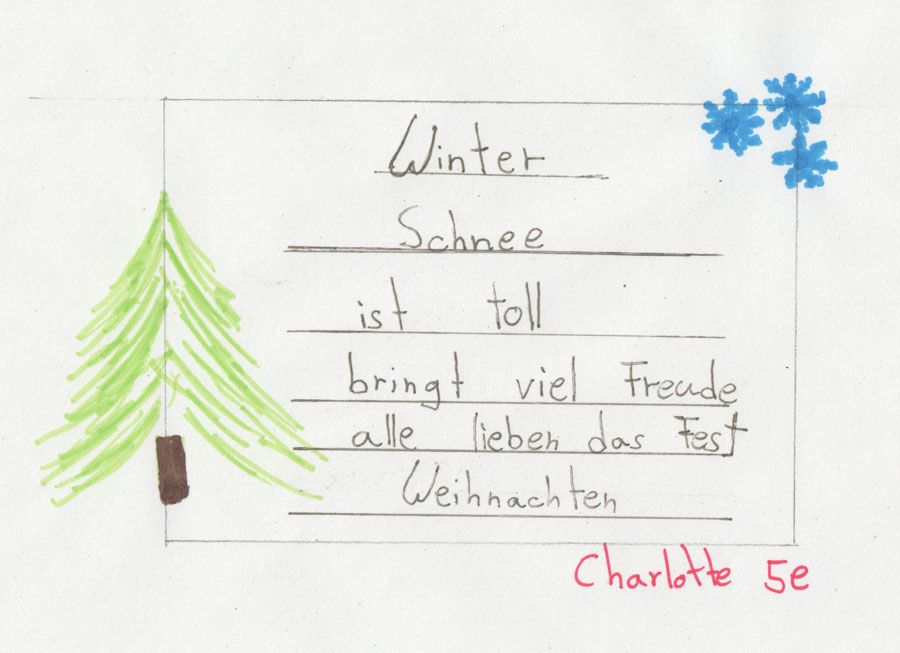 Winter
Schnee
ist toll
bringt viel Freude
alle lieben das Fest
Weihnachten
Charlotte 5e